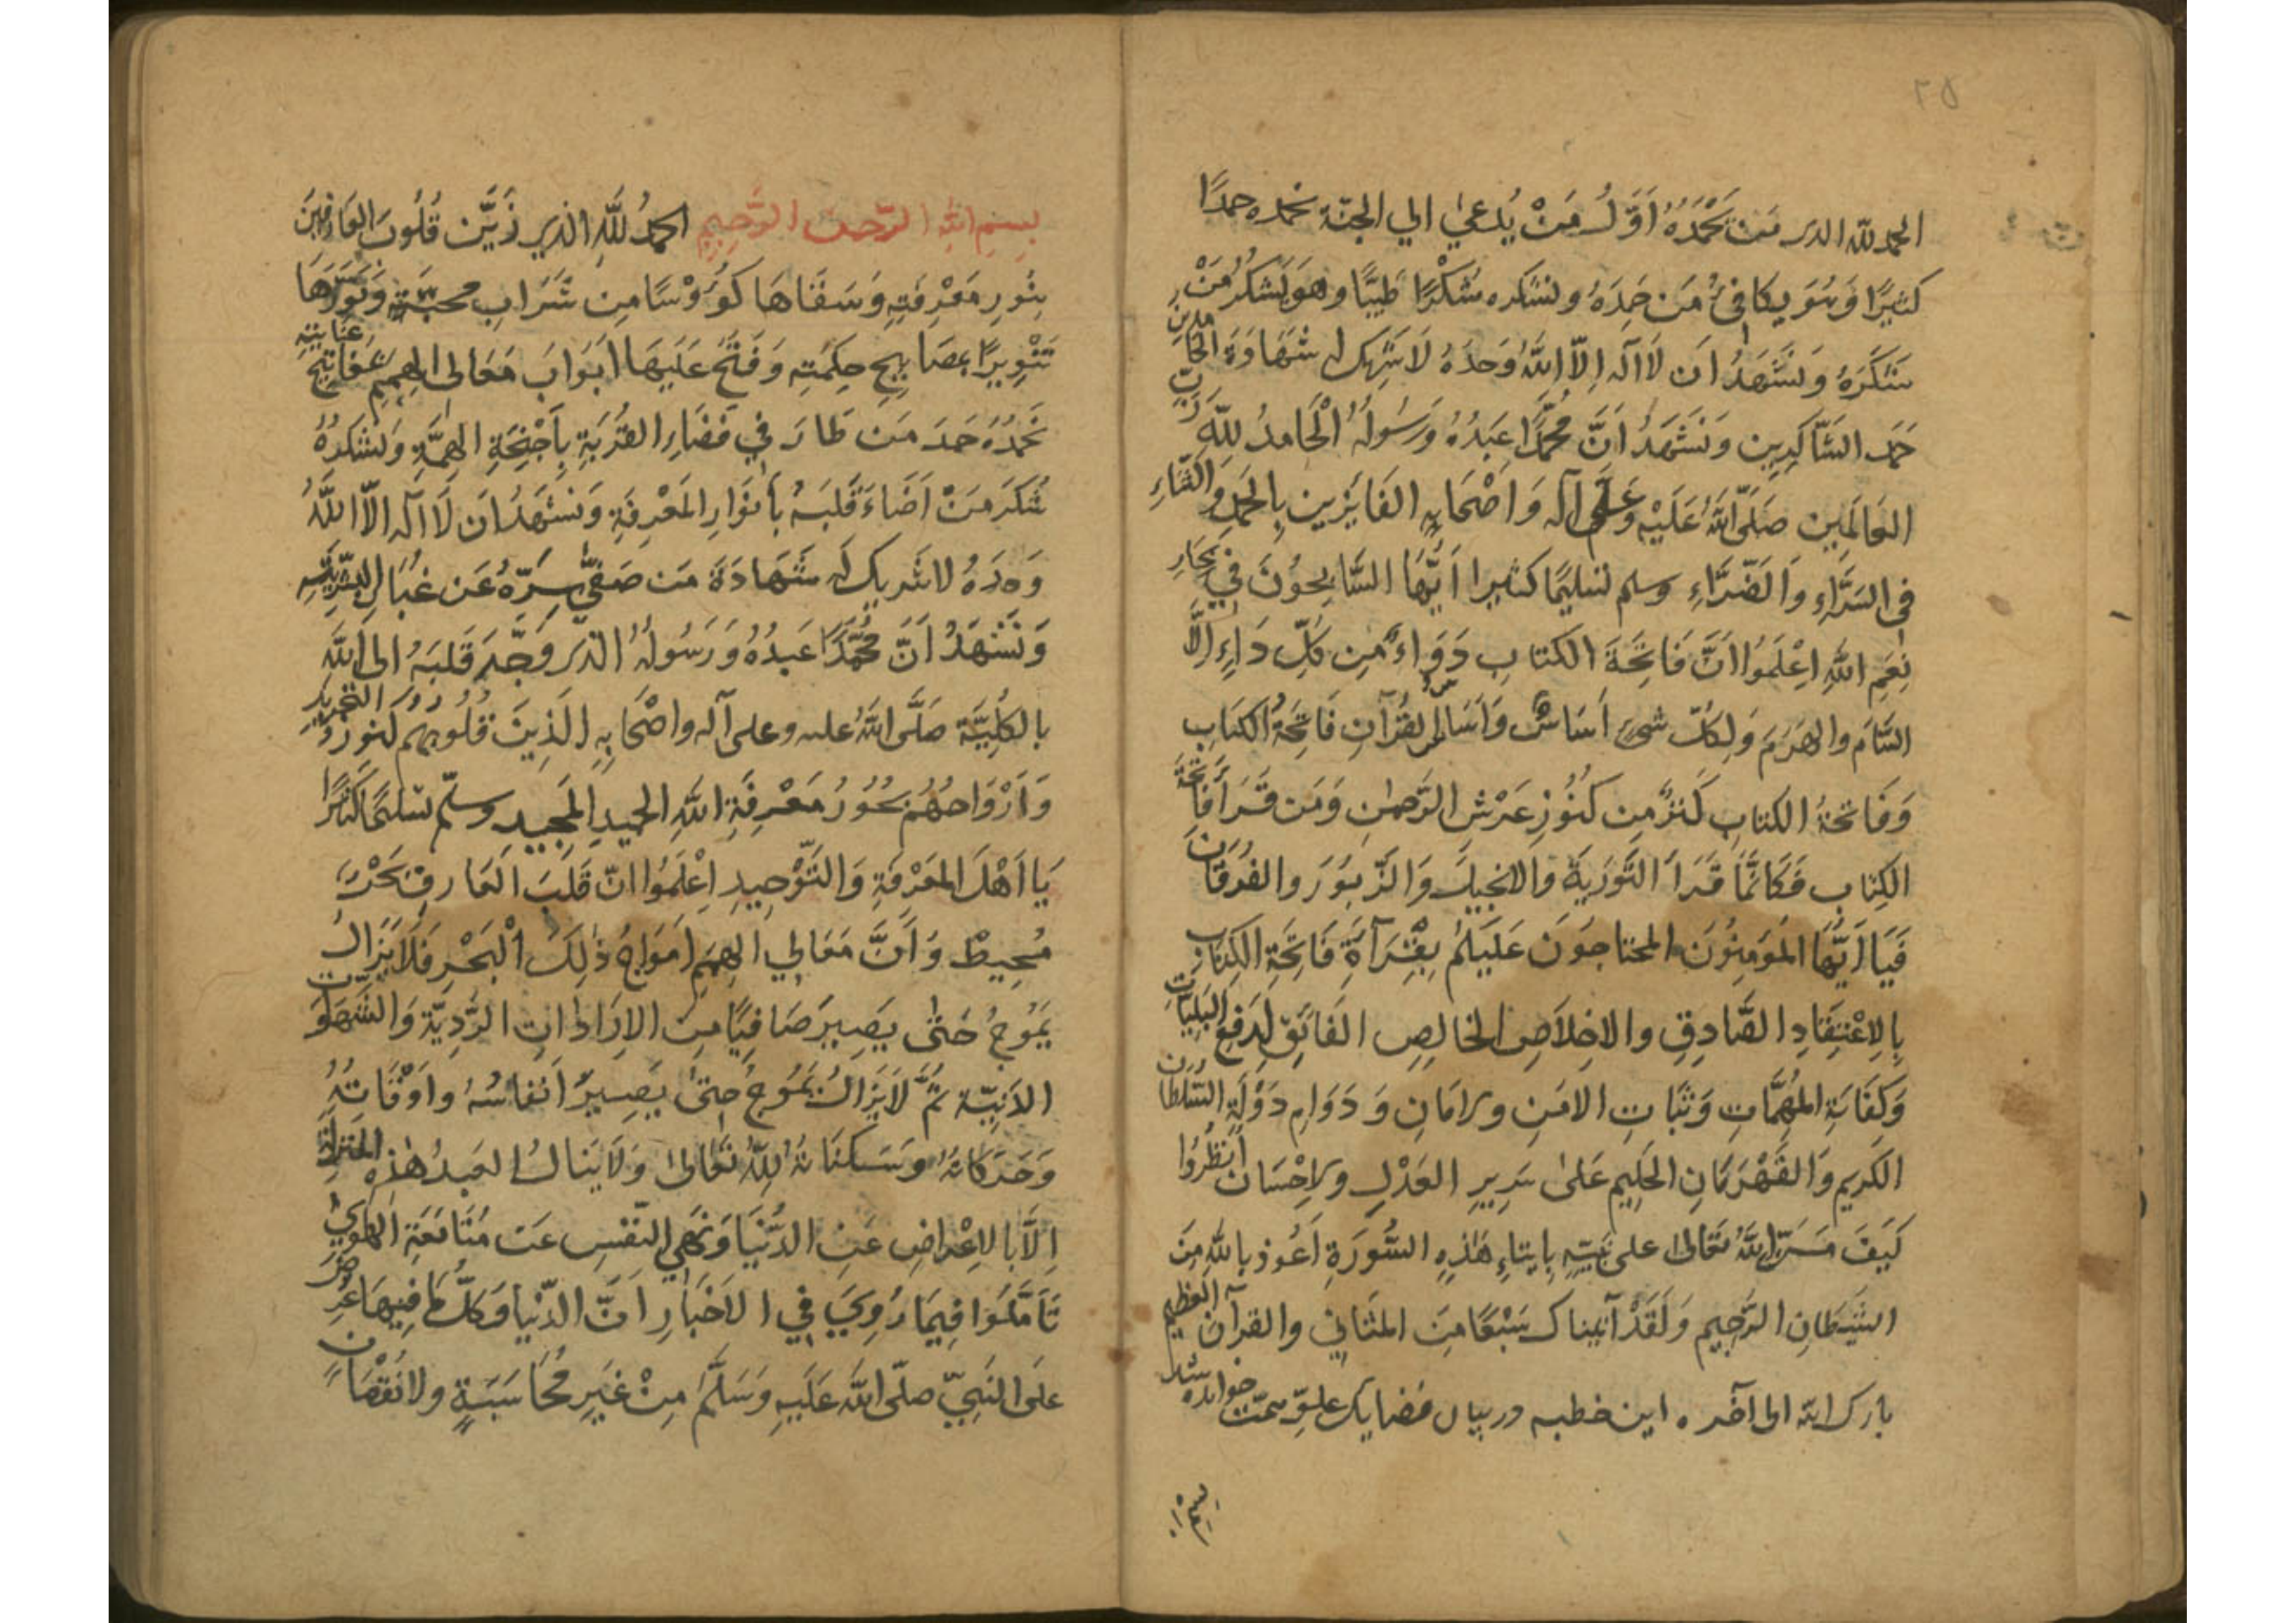 ٢٥
الحمد لله الذى مَنْ يَحْمَدُهُ اَوَّلُ مَنْ يُدعىٰ الي الجنّة نحمده حمدًا
كثيرًا وَهُوَ يكافئُ مَن حَمِدَهُ ونشكره شُكْرًا طَيّبًا وهو يَشكُرُ مَنْ
شَكَرَهُ وَنَشْهَدُ ان لَا اله اِلّا اللّٰهُ وَحدَهُ لَا شريك له شَهَادَةَ الحَامِدِينَ
حَمدَ الشَّاكِرِين وَنَشْهَدُ اَنَّ مُحمَّدًا عَبدُهُ وَرَسُولُهُ الْحَامِدُ لِلّٰهِ رَبِّ
العَالَمِين صَلَّى اللّٰهُ عَلَيْهِ وَعَلَى آله وَاَصْحَابِهِ الفَايِزِين بِالحَمدِ وَالثَّنَاءِ
فى السَّرَّاءِ وَالضَّرَّاءِ وسلم تسليمًا كثيرا اَيُّهَا السَّابِحُونَ فِي بِحَارِ
نِعَمِ اللّٰهِ اِعْلَمُوا اَنَّ فَاتِحَةَ الكتاب دَوَاءٌ مِن كُلِّ دَاءٍ اِلَّا
السَّامَ والهَرَمَ وَلِكُلِّ شَىءٍ اَسَاسٌ وَاَسَاسُ القُرآنِ فَاتِحَةُ الكتَابِ
وَفَاتحةُ الكتابِ كَنزٌ مِن كنُوزِ عَرْشِ الرَّحمٰنِ وَمَن قَرَأَ فَاتِحَةَ
الكِتاب فَكَانَّمَا قَرَأَ التَّورَيةَ والانجيلَ وَالزَّبُوَرَ والفُرقَانَ
فَيَا اَيُّهَا المُؤمِنُونَ المحتاجُونَ عَلَيكُم بِقِرَآءَةِ فَاتِحَةِ الكِتَابِ
بِالِاعْتِقَادِ الصَّادِقِ والاخِلَاصِ الخَالِصِ الفَائِقِ لِدَفعِ البَلِيَّاتِ
وَكِفَايَةِ المُهِمَّاتِ وَثَبَاتِ الامَنِ والامَانِ وَدَوَامِ دَوْلَةِ السُّلطَان
الكَرِيم وَالقَهْرَمَانِ الحَلِيمِ عَلىٰ سَرِيرِ العَدْلِ والاِحْسَان اُنظُرُوا
كَيفَ مَنَّ اللّٰهُ تَعَالىٰ على نَبِيّهِ بِايتاءِ هٰذِهِ السُّورَةِ اَعُوذ بِاللّٰهِ مِنَ
الشَّيطَانِ الرَّجيمِ وَلَقَدْ آتيناك سَبْعًا مِنَ المثَاني والقرآنَ العَظِيم
بارك الله الى آخره این خطبه در بیان فضایل علوّ همّت خوانده شد
بِسْمِ اللهِ الرَّحمن الرَّحِيمِ الحمدُ لِلّٰهِ الذي زَيَّن قُلُوبَ العَارِفينَ
بِنُورِ مَعْرِفَتِهِ وَسَقَاهَا كُؤُوْسًا مِن شَرَابِ محبَّتِهِ وَنَوَّرَهَا
تَنْوِيرًا بمصَابِيحِ حِكمَتِهِ وَفَتَحَ عَلَيهَا اَبْوَابَ مَعَالى الهِمَمِ بمفَاتِيحِ عنَايتِهِ
نَحمَدُهُ حَمَدَ مَن طَارَ فِي فَضَاءِ القُربَةِ بِاَجْنِحَةِ الهِمَّةِ وَنشكرهُ
شُكرَ مَنْ اَضَاءَ قَلبَهُ بِاَنوَارِ المَعْرِفَةِ وَنَشْهَدُ اَن لَا اله اِلّا اللّٰهُ
وَحدَهُ لا شَريك له شَهَادَةَ مَن صَفىّٰ سِرّهُ عَن غُبَارِ البَشَرِيّةِ
وَنَشْهَدُ اَنَّ مُحَمَّدًا عَبدُهُ وَرَسُولُهُ الذى وَجَّهَ قَلبَهُ الى اللّٰهِ
بالكُلِيَّةِ صَلَّى اللّٰهُ عليه وعلى آله واَصْحَابِهِ الَذِينَ قُلُوبهُم كنوز دُرَرِ التوحِيدِ
وَاَرْوَاحُهُم بُحُورُ مَعْرِفَةِ اللّٰهِ الحميدِ المَجِيدِ وسلّم تسليمًا كثيرًا
يَا اَهْلَ المَعرْفَةِ وَالتَّوْحِيدِ اِعْلَمُوا انّ قَلبَ العَارف بَحْرٌ
مُحِيطٌ وَاَنَّ مَعَالِي الهِمَمِ اَموَاجُ ذٰلِكَ اْلبَحْرِ فَلَا يَزَالُ
يَمُوجُ حَتىّٰ يصِيرَ صَافِيًا مِنَ الاِرَادَاتِ الرَّدِيّةِ وَالشَّهَوَاتِ
الدَنِيّة ثمَّ لَا يَزَالُ يَمُوجُ حتّىٰ يَصِيرَ اَنفَاسُهُ واَوْقَاتُهُ
وَحَرَكَاتهُ وَسَكنَاتهُ لِلّٰهِ تَعَالىٰ وَلَا يَنالُ العَبدُ هٰذِهِ المنزلَةَ
اِلَّا بالاِعْرَاضِ عَنِ الدُّنْيَا وَنَهي النَّفْسِ عَن مُتَابَعَةِ الهَوىٰ
تَأَمَّلُوا فِيمَا رُوِيَ فِي الاَخْبَارِ اَنَّ الدُّنْيا وَكُلَّ مَا فِيهَا عُرِضَ
علَى النَبِيّ صلّى اللّٰهُ عَلَيهِ وَسَلَّمَ مِنْ غَيرِ مُحَاسَبَةٍ ولا نُقصَانٍ